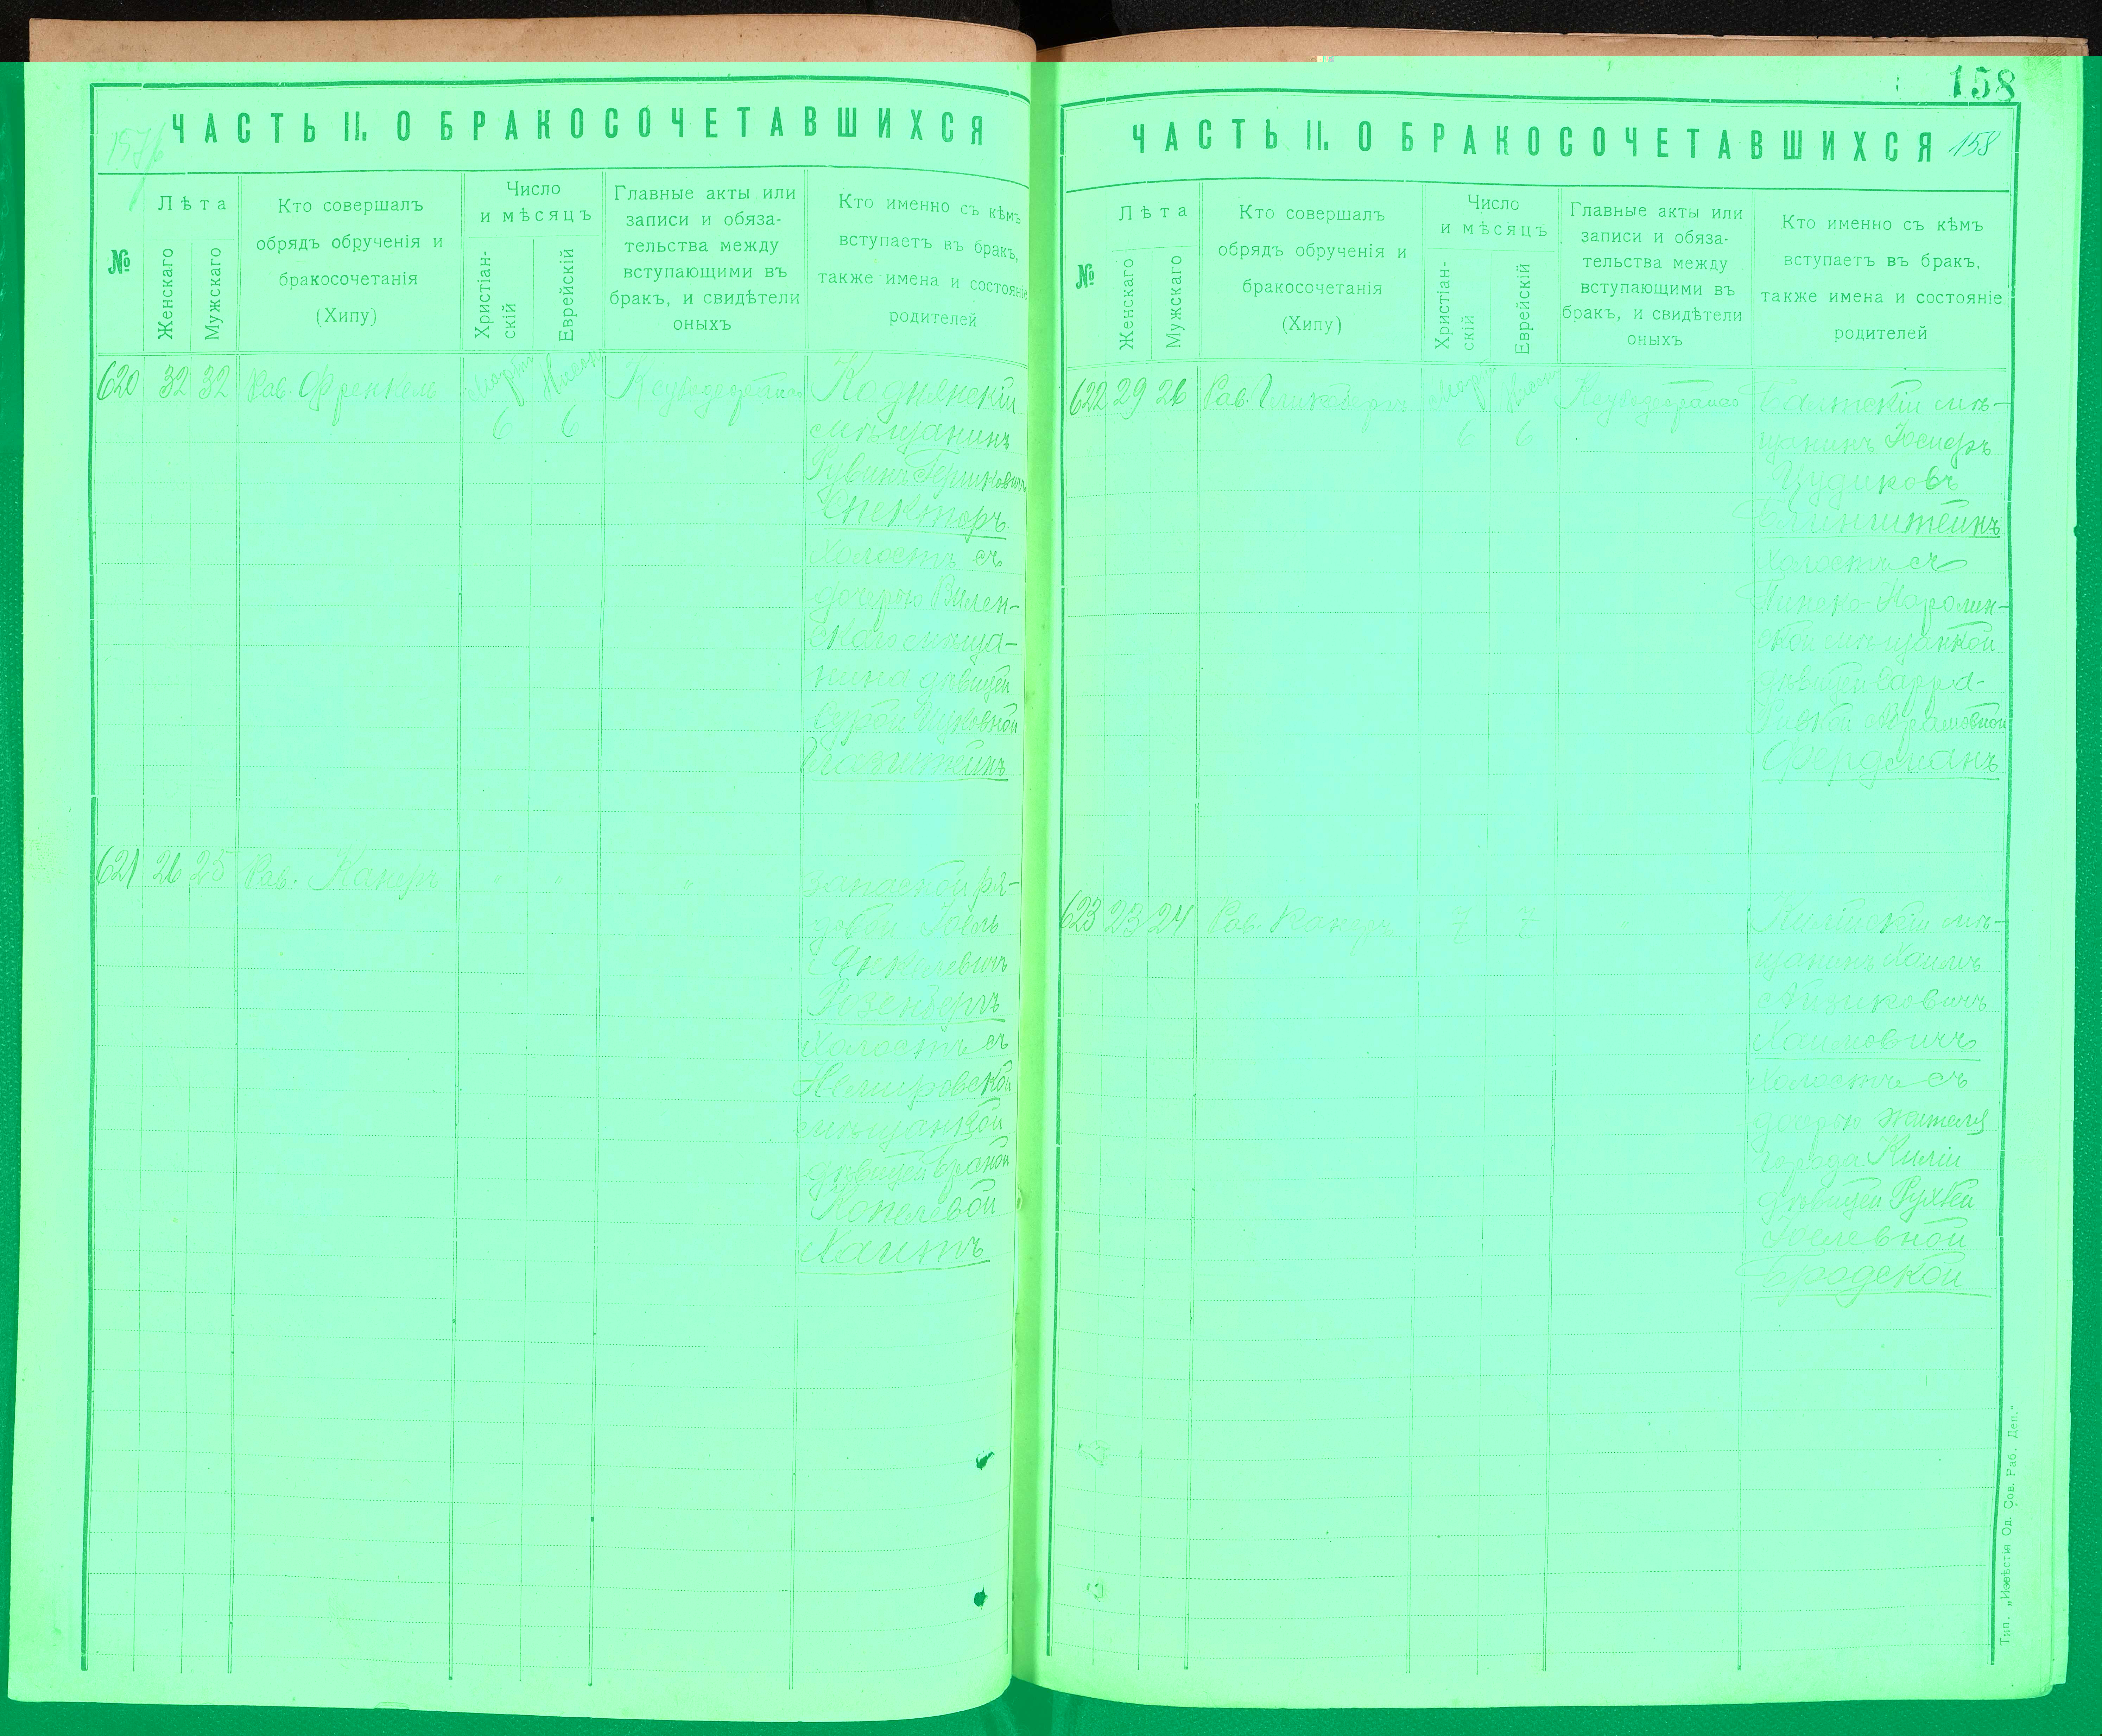 158
ЧАСТЬ II. О БРАКОСОЧЕТАВШИХСЯ
№
Лѣта
Женскаго
Мужскаго
Кто совершалъ
обрядъ обрученія и
бракосочетанія
(Хипу)
Число
и мѣсяцъ
Христіан-
скій
Еврейскій
Главные акты или
записи и обяза-
тельства между
вступающими въ
бракъ, и свидѣтели
оныхъ
Кто именно съ кѣмъ
вступаетъ въ бракъ,
также имена и состояніе
родителей
620 32 32 Рав. Френкель
6 6
мѣщанинъ
Рувинъ Гершковичъ
Спекторъ
холостъ съ
дочерью Вилен-
скаго мѣща-
нина дѣвицей
621 26 25 Рав. Канеръ " " "
запасной ря-
довой Іоель
Янкелевичъ
Розенбергъ
Холостъ съ
Немировской
мѣщанкой
дѣвицей
Копелевой
Хаитъ
ЧАСТЬ II. О БРАКОСОЧЕТАВШИХСЯ 158
№
Лѣта
Женскаго
Мужскаго
Кто совершалъ
обрядъ обрученія и
бракосочетанія
(Хипу)
Число
и мѣсяцъ
Христіан-
скій
Еврейскій
Главные акты или
записи и обяза-
тельства между
вступающими въ
бракъ, и свидѣтели
оныхъ
Кто именно съ кѣмъ
вступаетъ въ бракъ,
также имена и состояніе
родителей
622 29 26 Рав.
6 6
Балтскій мѣ-
щанинъ Іосифъ
Цудиковъ
холостъ съ
Пинско-Каролин-
ской мѣщанкой
дѣвицей Сарра-
Ривкой Абрамовной
Фердманъ
623 23 24 Рав. Канеръ 7 7 "
Килійскій мѣ-
щанинъ Хаимъ
Айзиковичъ
Хаимовичъ
Холостъ съ
дочерью жителя
города Киліи
дѣвицей Рухлей
Іоселевной
Бродской
Тип. „Извѣстія Од. Сов. Раб. Деп."